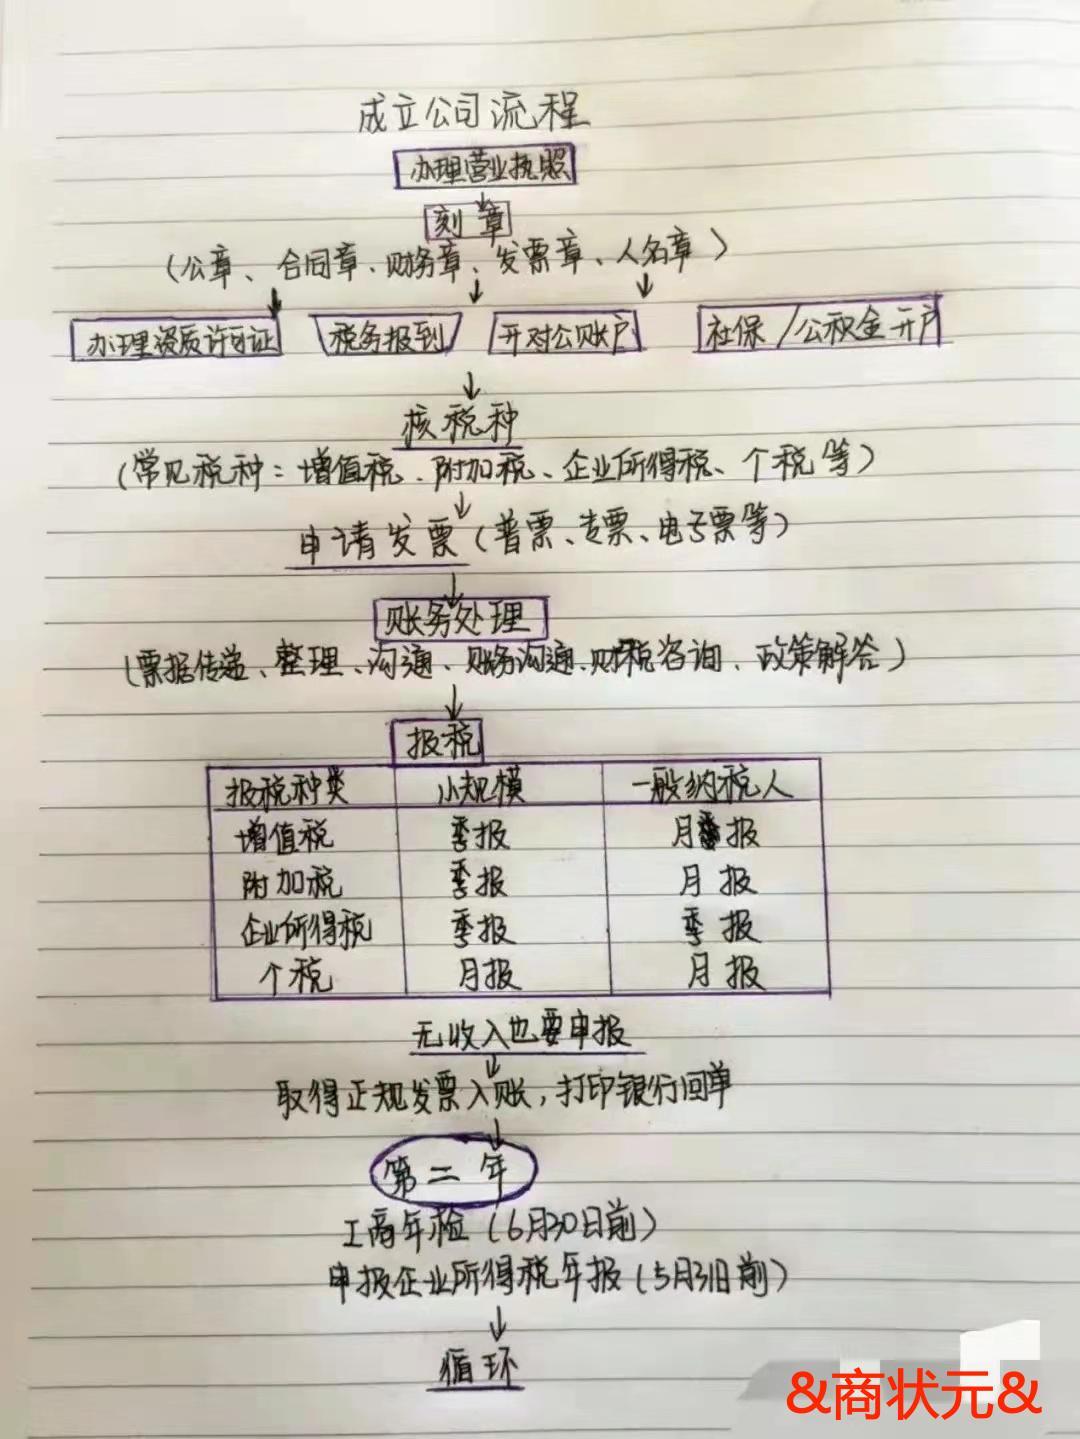 成立公司流程
办理营业执照
刻章
(公章、合同章、财务章、发票章、人名章)
办理资质许可证 税务报到 开对公账户 社保/公积金开户
核税种
(常见税种:增值税、附加税、企业所得税、个税等)
申请发票(普票、专票、电子票等)
账务处理
(票据传递、整理、沟通、账务沟通、财税咨询、政策解答)
报税
报税种类 小规模 一般纳税人
增值税 季报 月报
附加税 季报 月报
企业所得税 季报 季报
个税 月报 月报
无收入也要申报
取得正规发票入账,打印银行回单
第二年
工商年检(6月30日前)
申报企业所得税年报(5月31日前)
循环
&商状元&